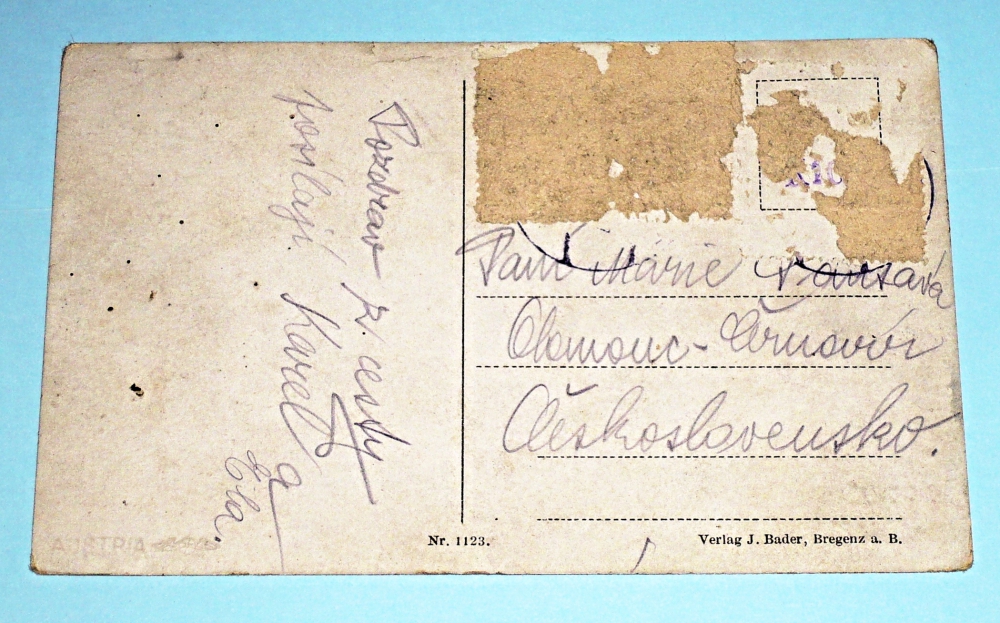 Pozdrav z cesty
posílají Karel a
Ela.
Paní Marie
Olomouc-
Československo.
AUSTRIA
Nr. 1123.
Verlag J. Bader, Bregenz a. B.